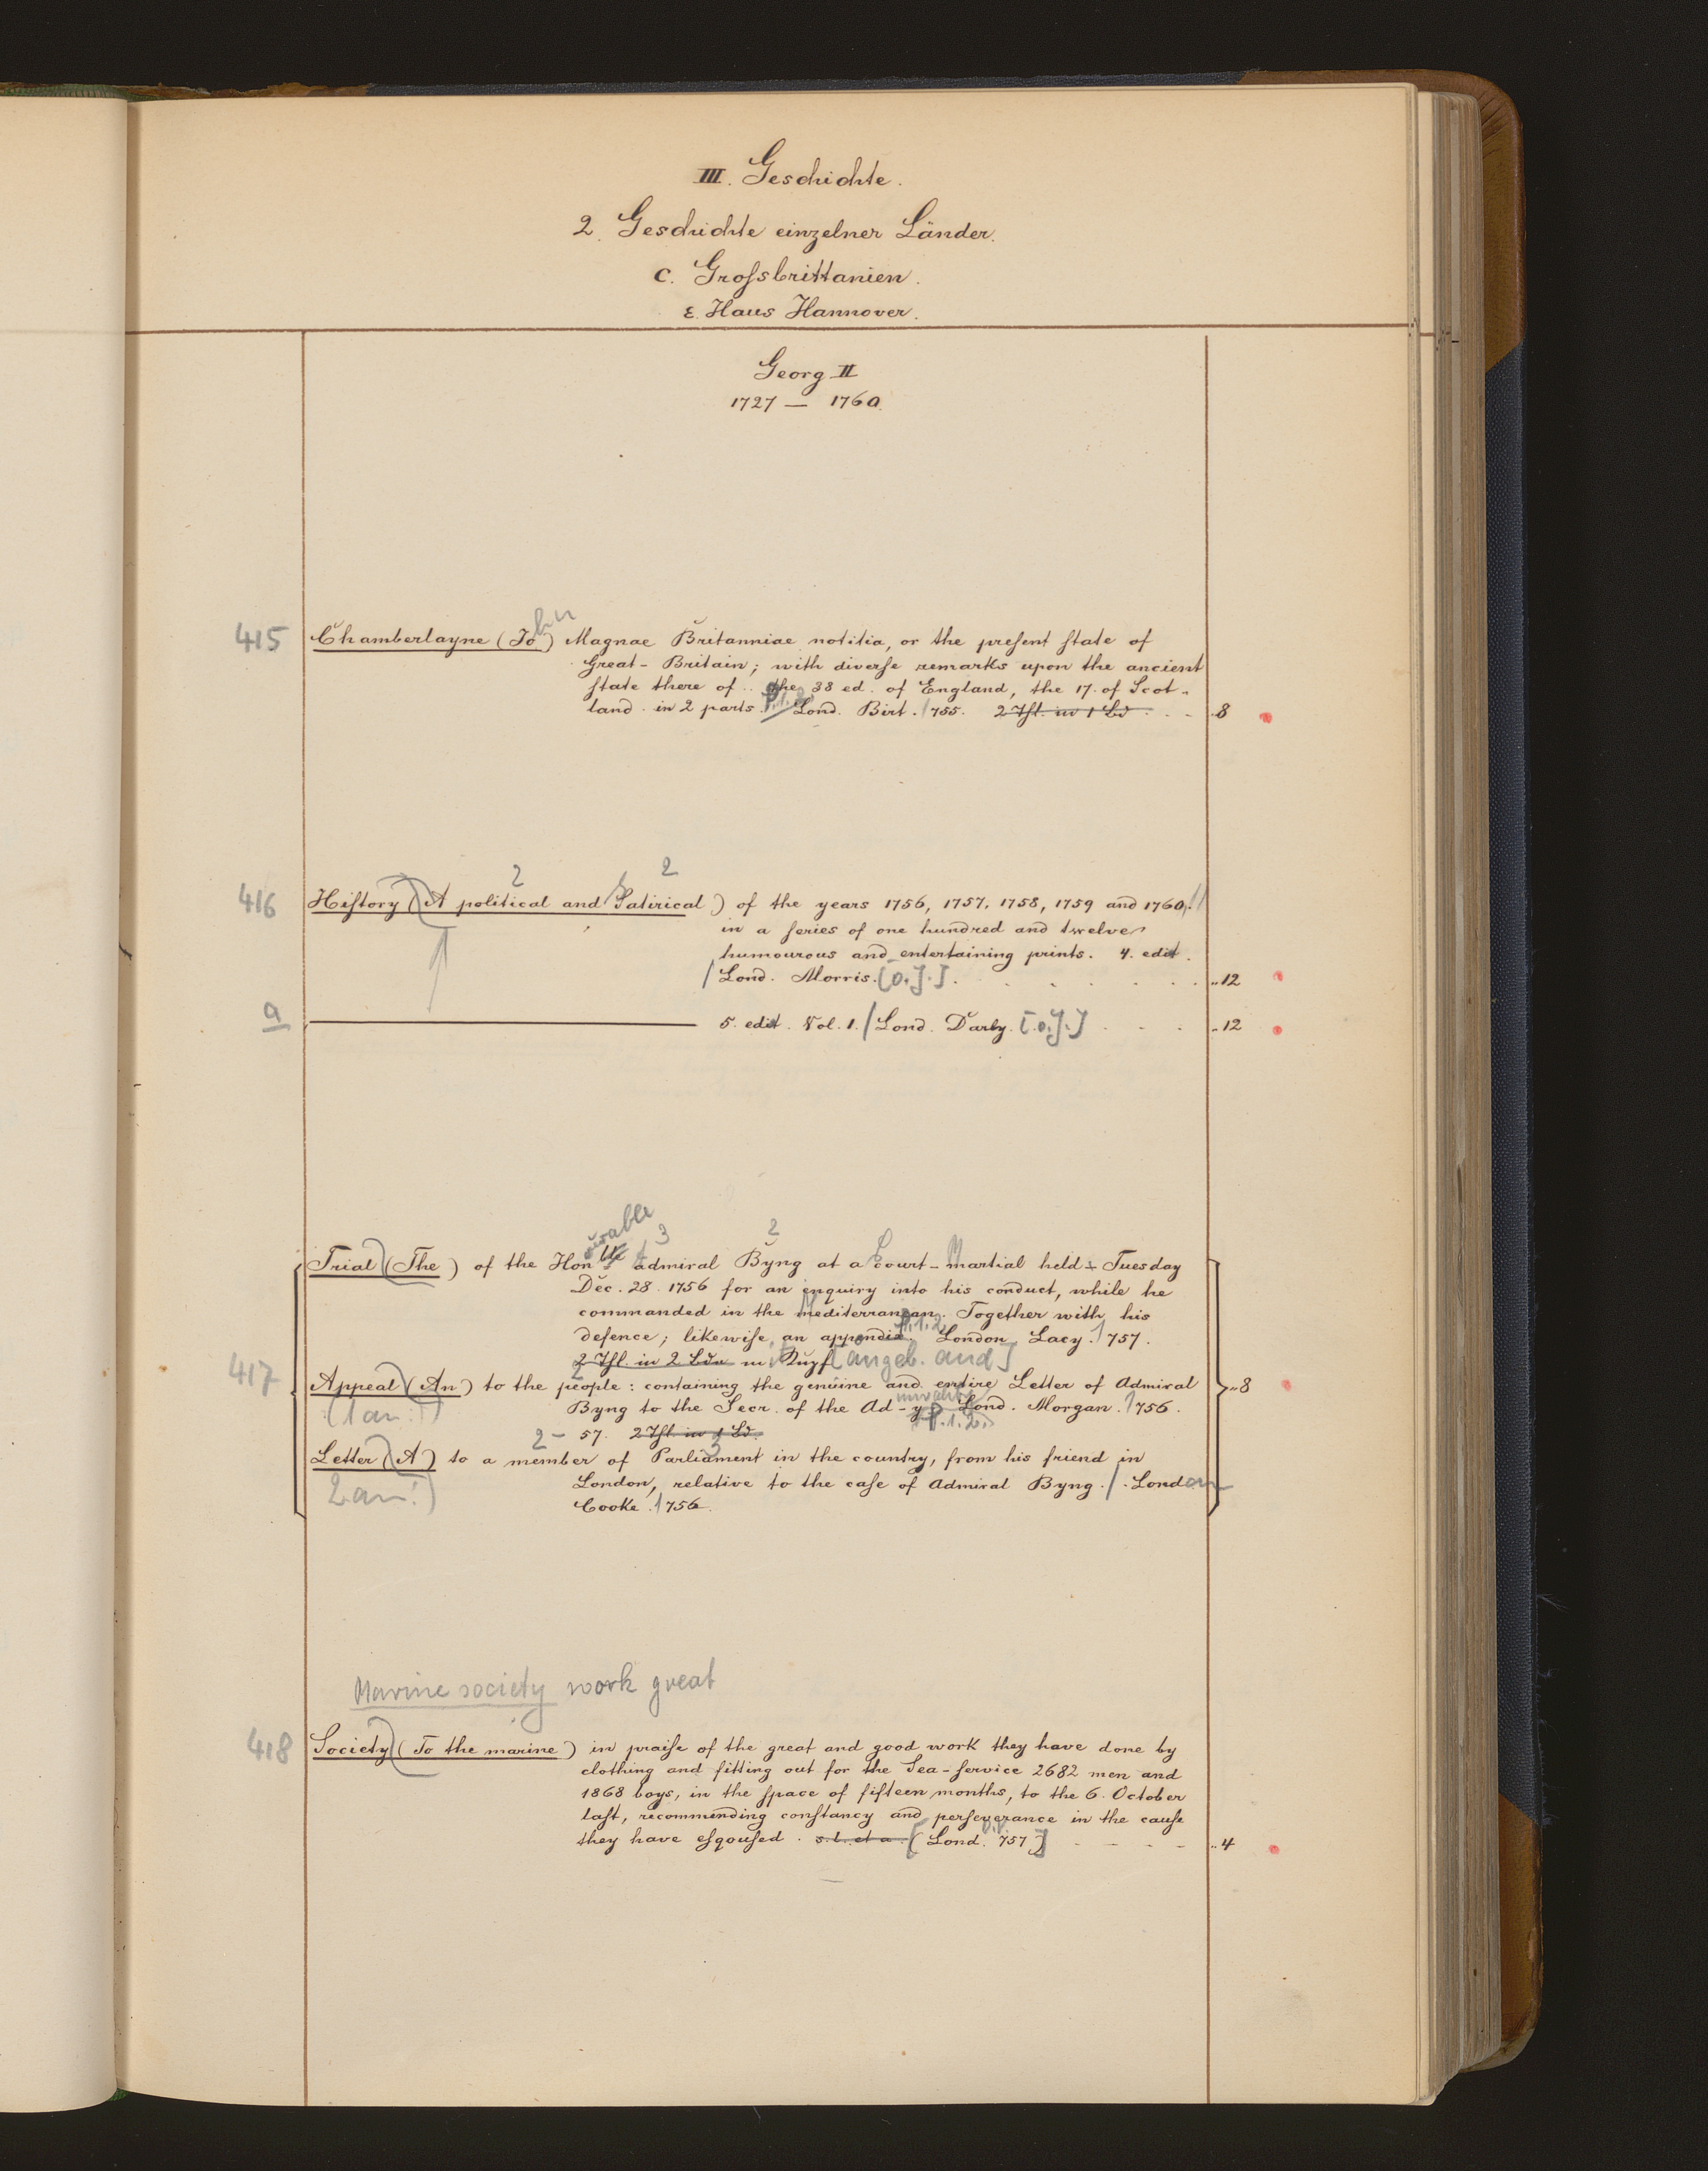 III. Geschichte.
2. Geschichte einzelner Länder.
c. Grossbrittanien.
ε. Haus Hannover.
Georg II
1727 — 1760
hn
415 Chamberlayne (Jo.) Magnae Britanniae notitia, or the present state of
Great-Britain; with diverse remarks upon the ancient
state there of .. the 38 ed. of England, the 17. of Scot-
land. in 2 parts. P.1.2. Lond. Birt. 1755. 2 Thl. in 1 Bd . . . 8
2 2
416 History (A political and Satirical) of the years 1756, 1757, 1758, 1759 and 1760.
in a series of one hundred and twelve
humourous and entertaining prints. 4. edit.
/ Lond. Morris. [o.J.] . . . . . . . „12
a ——— 5. edit. Vol. 1. / Lond. Darby. [o.J.] . . . „12
urable 3 2
Trial (The) of the Hon ble admiral Byng at a Court-Martial held Tuesday
Dec. 28. 1756 for an enquiry into his conduct, while he
commanded in the mediterranean. Together with his
defence; likewise an appendix. P.1.2. London Lacy. 1757.
2 Thl. in 2 Bdn [angeb. and]
417 Appeal (An) to the people: containing the genuine and entire Letter of Admiral
(1 an:) Byng to the Secr. of the Ad-y mirality P.1.2. Lond. Morgan. 1756. „8
2 — 57. 2 Thl. in 1 Bd.
Letter (A) to a member of Parliament in the country, from his friend in
2 an:) London, relative to the case of Admiral Byng. / London
Cooke. 1756.
Marine society work great
418 Society (To the marine) in praise of the great and good work they have done by
clothing and fitting out for the Sea-service 2682 men and
1868 boys, in the space of fifteen months, to the 6. October
last, recommending constancy and perseverance in the cause
they have esqoused. s. l. et a. [Lond. 757] . . . „4